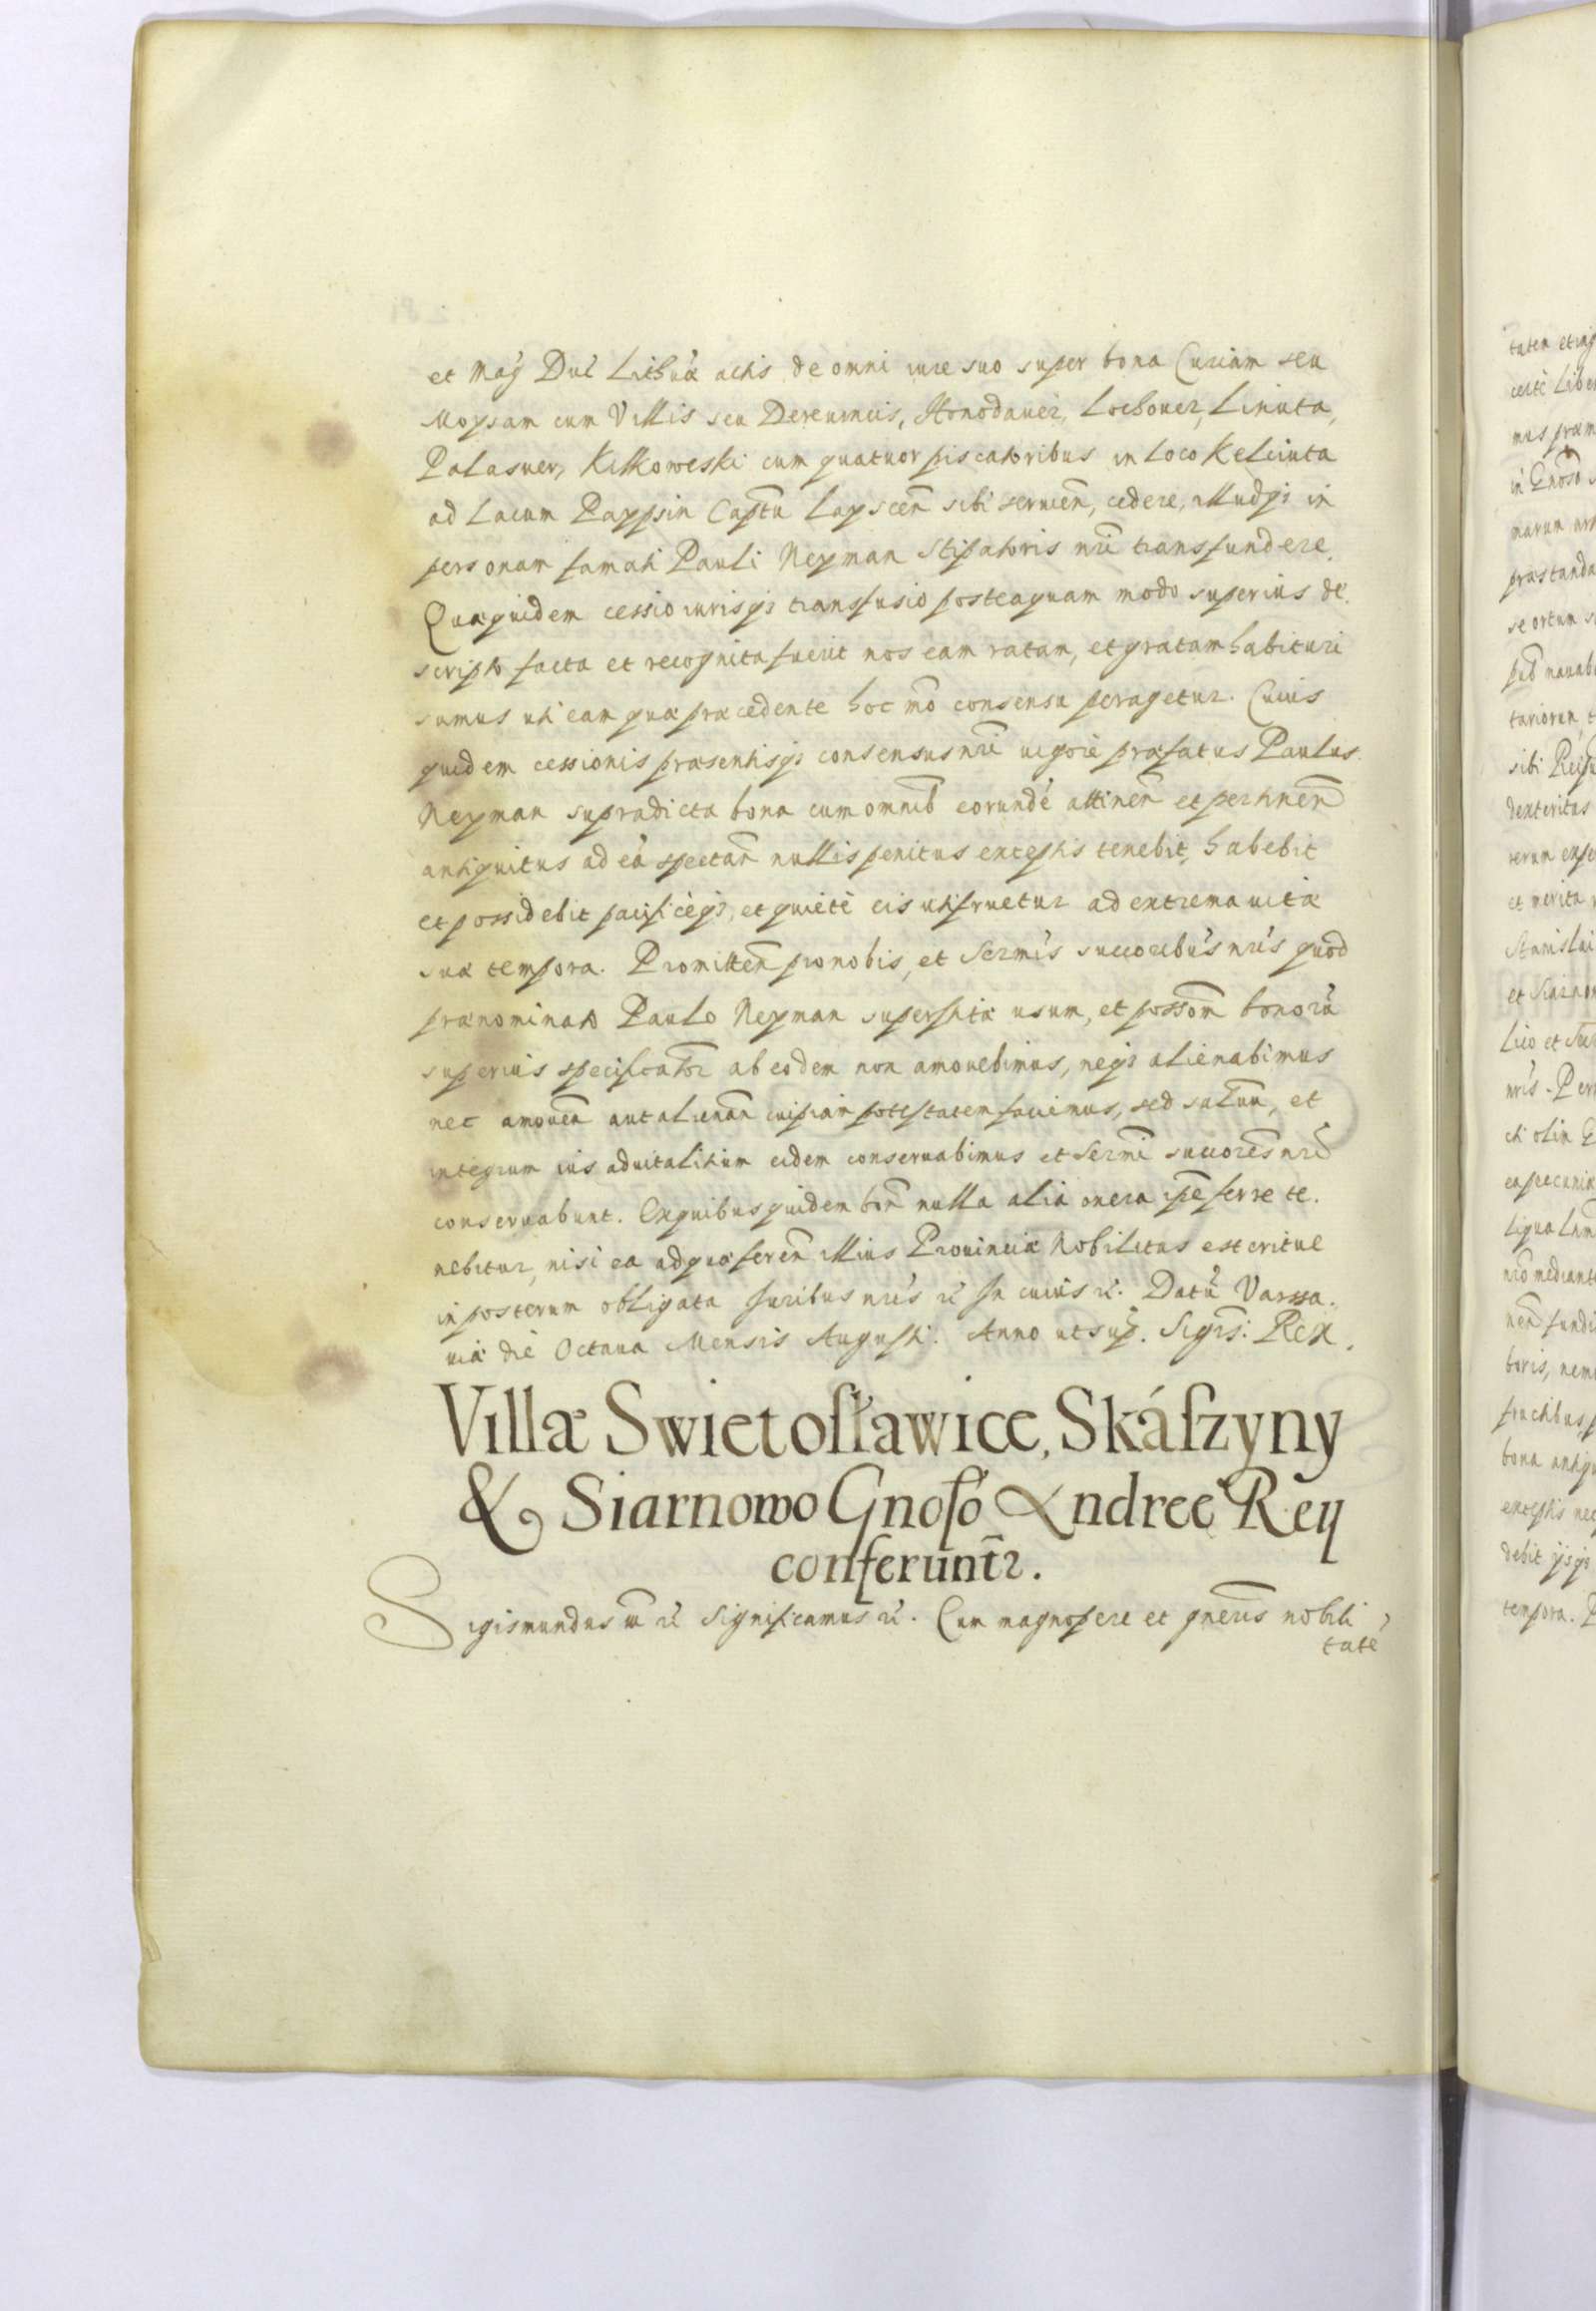 et Mag Dul Lithuæ actis de omni iure suo super bona Curiam seu
Moysam cum Villis seu Dereuniis, Honodaver, Lochover, Linuta,
Palasuer, Kilkoweski cum quatuor piscatoribus in loco Kelciuta
ad Lacum Pappsin Captu Layscen̄ sibi seruien̄, cedere, illudq; in
personam famati Pauli Neyman Stipatoris nr̄i transfundere.
Quæquidem cessio iurisq; transfusio posteaquam modo superius de.
scripto facta et recognita fuerit nos eam ratam, et gratam habituri
sumus uti eam quæ præcedente hoc nr̄o consensu peragetur. Cuius
quidem cessionis præsentisq; consensus nr̄i uigore præfatus Paulus
Neyman supradicta bona cum omnib eorundē attinen̄ et pertinen̄
antiquitus ad ea spectan̄ nullis penitus exceptis tenebit, habebit
et possidebit pacificèq;, et quietè eis utifruetur ad extrema uitæ
suæ tempora. Promitten̄ pro nobis, et Sermīs succoribūs nrīs quod
prænominato Paulo Neyman superstite usum, et possom̄ bonorū
superius specificator̄ ab eodem non amouebimus, neq; alienabimus
nec amouen̄ aut alienan̄ cuipiam potestatem faciemus, sed saluum, et
integrum ius aduitalitium eidem conseruabimus et Sermī succores̄ nrī
conseruabunt. Ex quibus quidem bon̄ nulla alia onera ip̄e ferre te.
nebitur, nisi ea ad quæ feren̄ illius Prouinciæ Nobilitas est eritue
in posterum obligata Iuribus nrīs rē In cuius rē. Datū Varssa.
uiæ die Octaua Mensis Augusti. Anno ut sup̄. Sigis: Rex.
Villæ Swietosławice, Skászyny
& Siarnowo Gnoso Andreę Rey
conferunt̄r.
Sigismundus III rē Significamus rē. Cum magnopere et gneris nobili
tatē